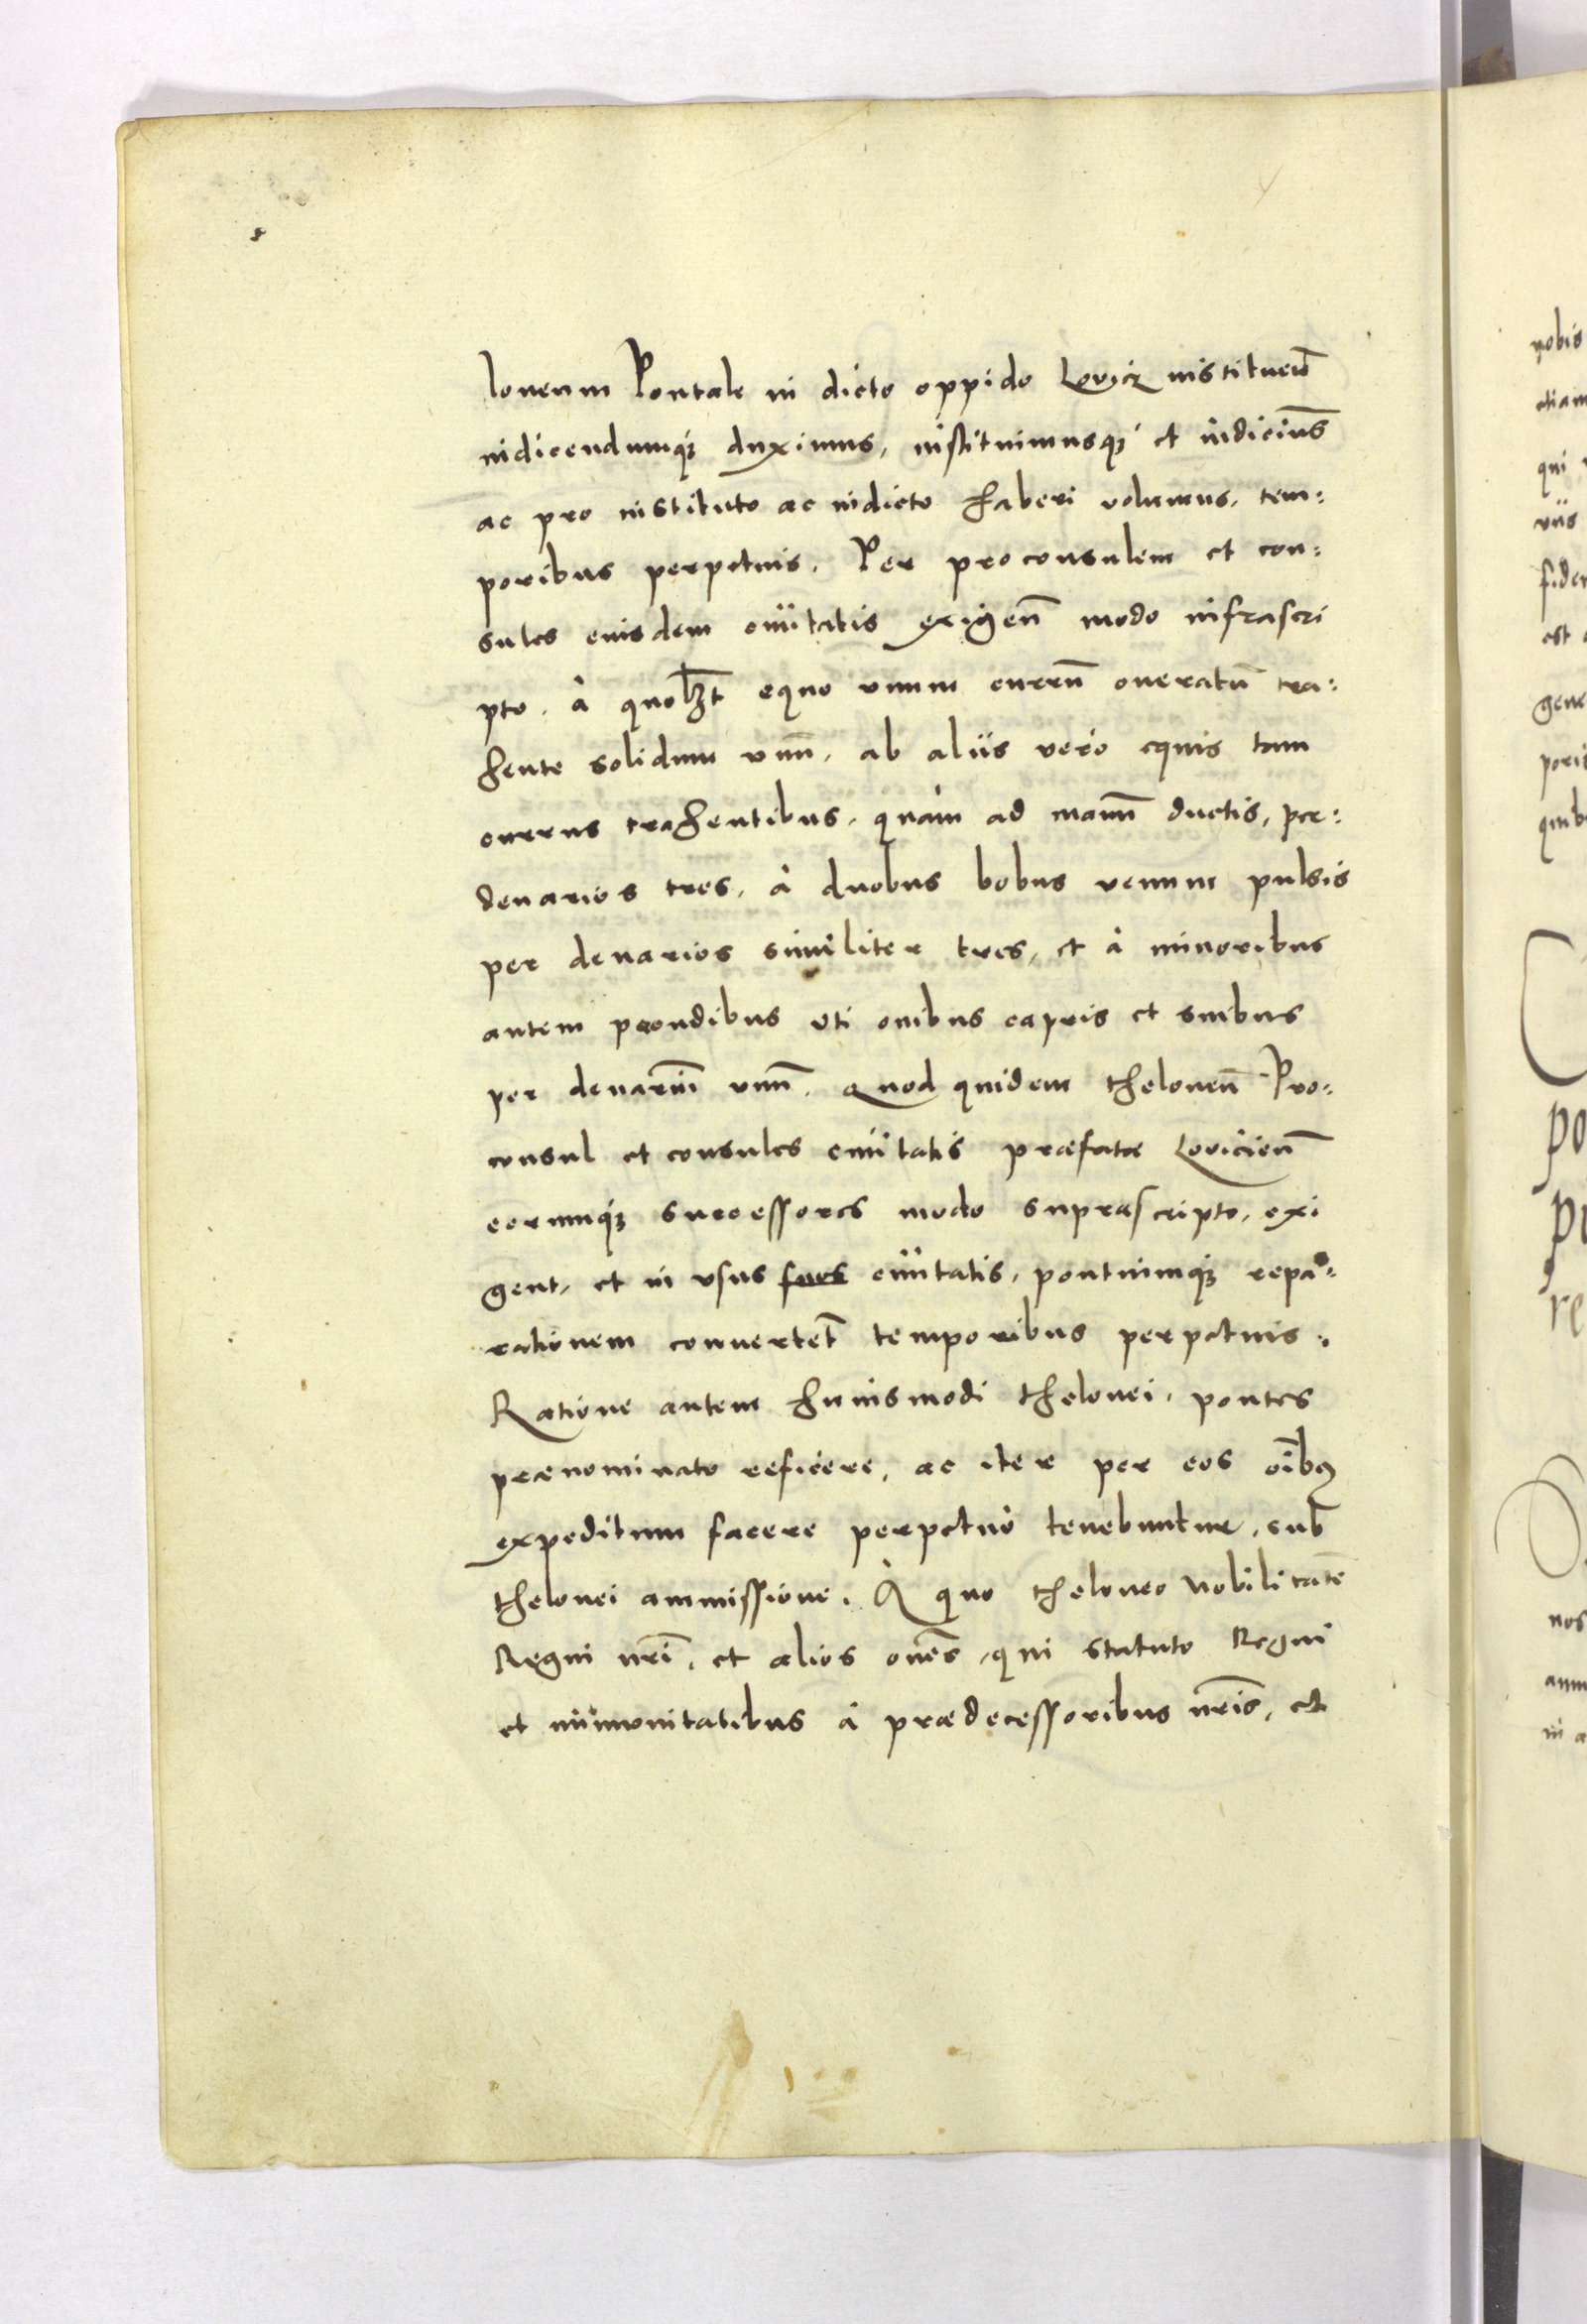 loneum Pontale in dicto oppido Lovicz instituen̄
indicendumqꝫ duximus, instituimusqꝫ et indicim̄s
ac pro instituto ac indicto haberi volumus, tem:
poribus perpetuis. Per proconsulem et con:
sules eiusdem ciuitatis exigen̄ modo infrascri
pto. à quolꝫt equo vnum currū oneratū tra:
hente solidum vnū, ab alijs verò equis tam
currus trahentibus, quàm ad manū ductis, per:
denarios tres, à duobus bobus venum pulsis
per denarios similiter tres, et à minoribus
autem pecudibus vti ouibus capris et suibus
per denariū vnū. Quod quidem theloneū Pro:
consul et consules ciuitatis præfatæ Louicien̄
eorumqꝫ successores modo suprascripto, exi
gent, et in vsus suos ciuitatis, pontiumqꝫ repa:
rationem conuertēt temporibus perpetuis.
Ratione autem huiusmodi thelonei, pontes
prænominato reficere, ac iter per eos oībꝰ
expeditum facere perpetuò tenebuntur, sub
thelonei ammissione. A quo theloneo Nobilitatē
Regni nr̄i, et alios om̄es, qui statuto Regni
et immunitatibus à prædecessoribus nr̄is, et
nobis
etiam
qui
vijs
est
gene
porib
quib
po
re
nos
ann
in a